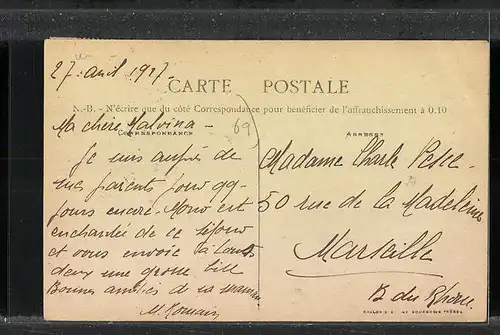 27 avril 1917.
CARTE POSTALE
N.-B. - N'écrire que du côté Correspondance pour bénéficier de l'affranchissement à 0.10
Ma chère Malvina -
69
CORRESPONDANCE
ADRESSE
Je suis auprès de
mes parents pour qq.
jours encore.
est
enchantée de ce séjour
et vous envoie à toutes
deux une grosse bise
Bonnes amitiés de sa maman
M. Romain
Madame Charle
50 rue de la Madeleine
Marseille
B. du Rhône